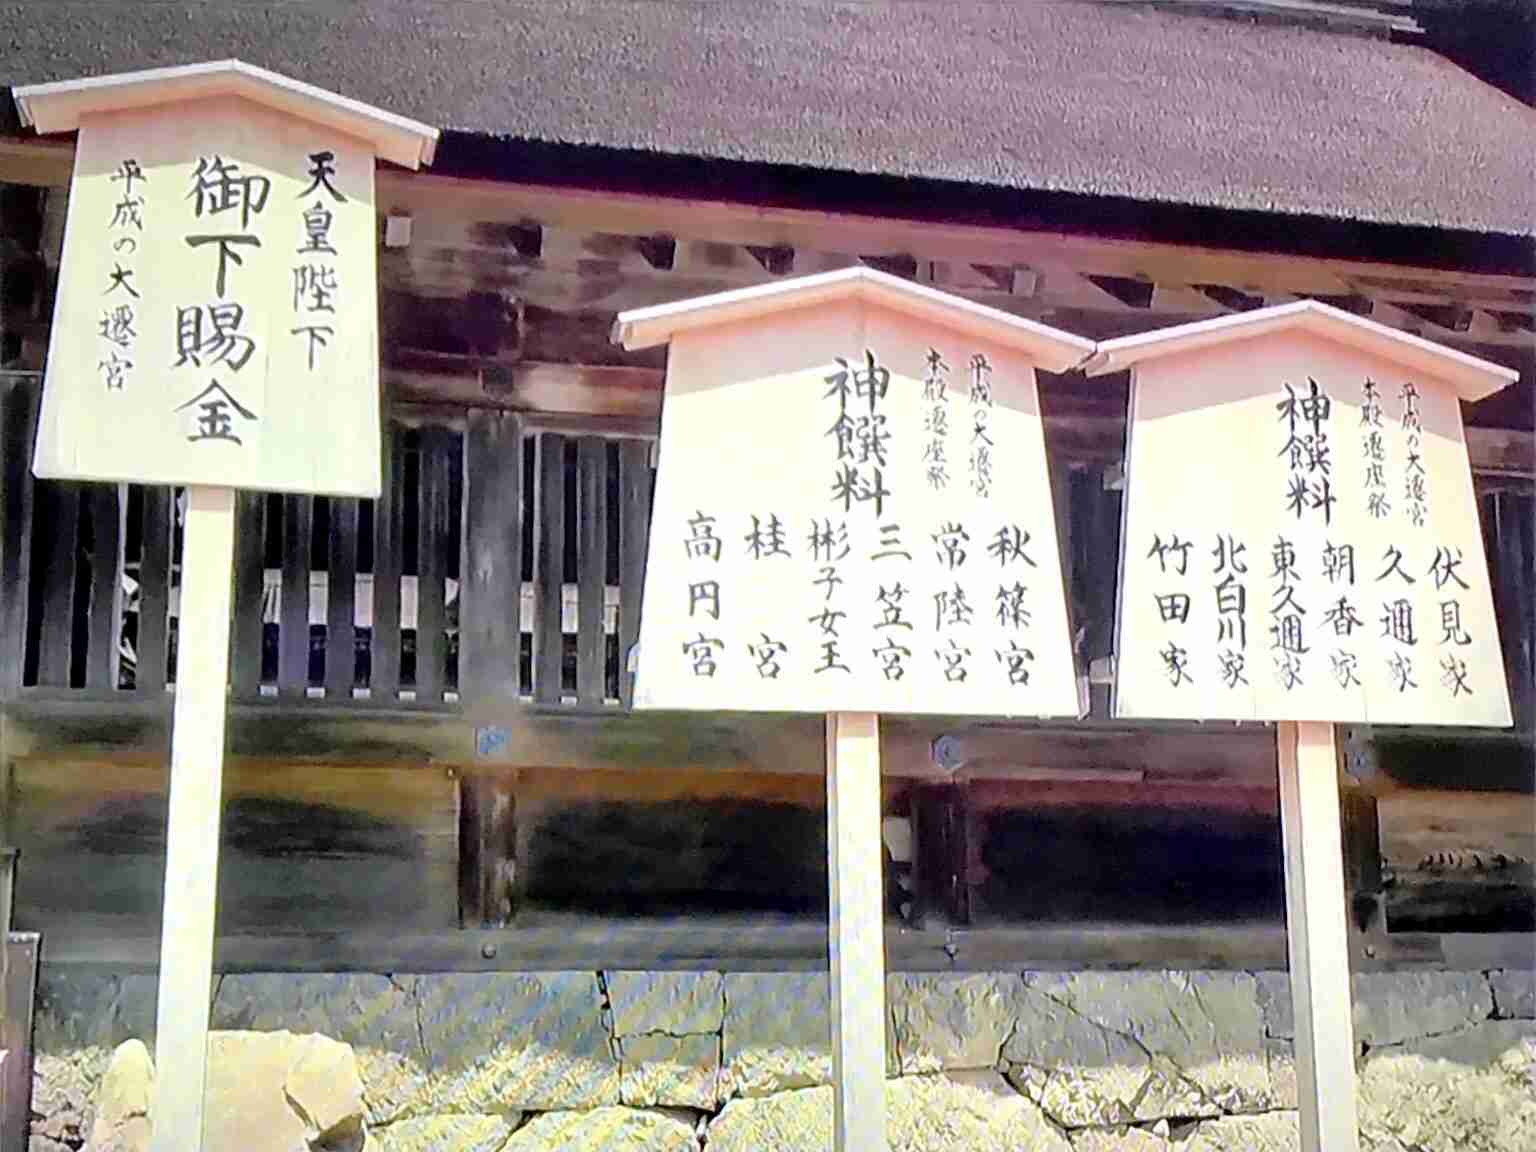 天皇陛下
御下賜金
平成の大遷宮
平成の大遷宮
本殿遷座祭
神饌料
秋篠宮
常陸宮
三笠宮
彬子女王
桂宮
高円宮
平成の大遷宮
本殿遷座祭
神饌料
伏見家
久邇家
朝香家
東久邇家
北白川家
竹田家